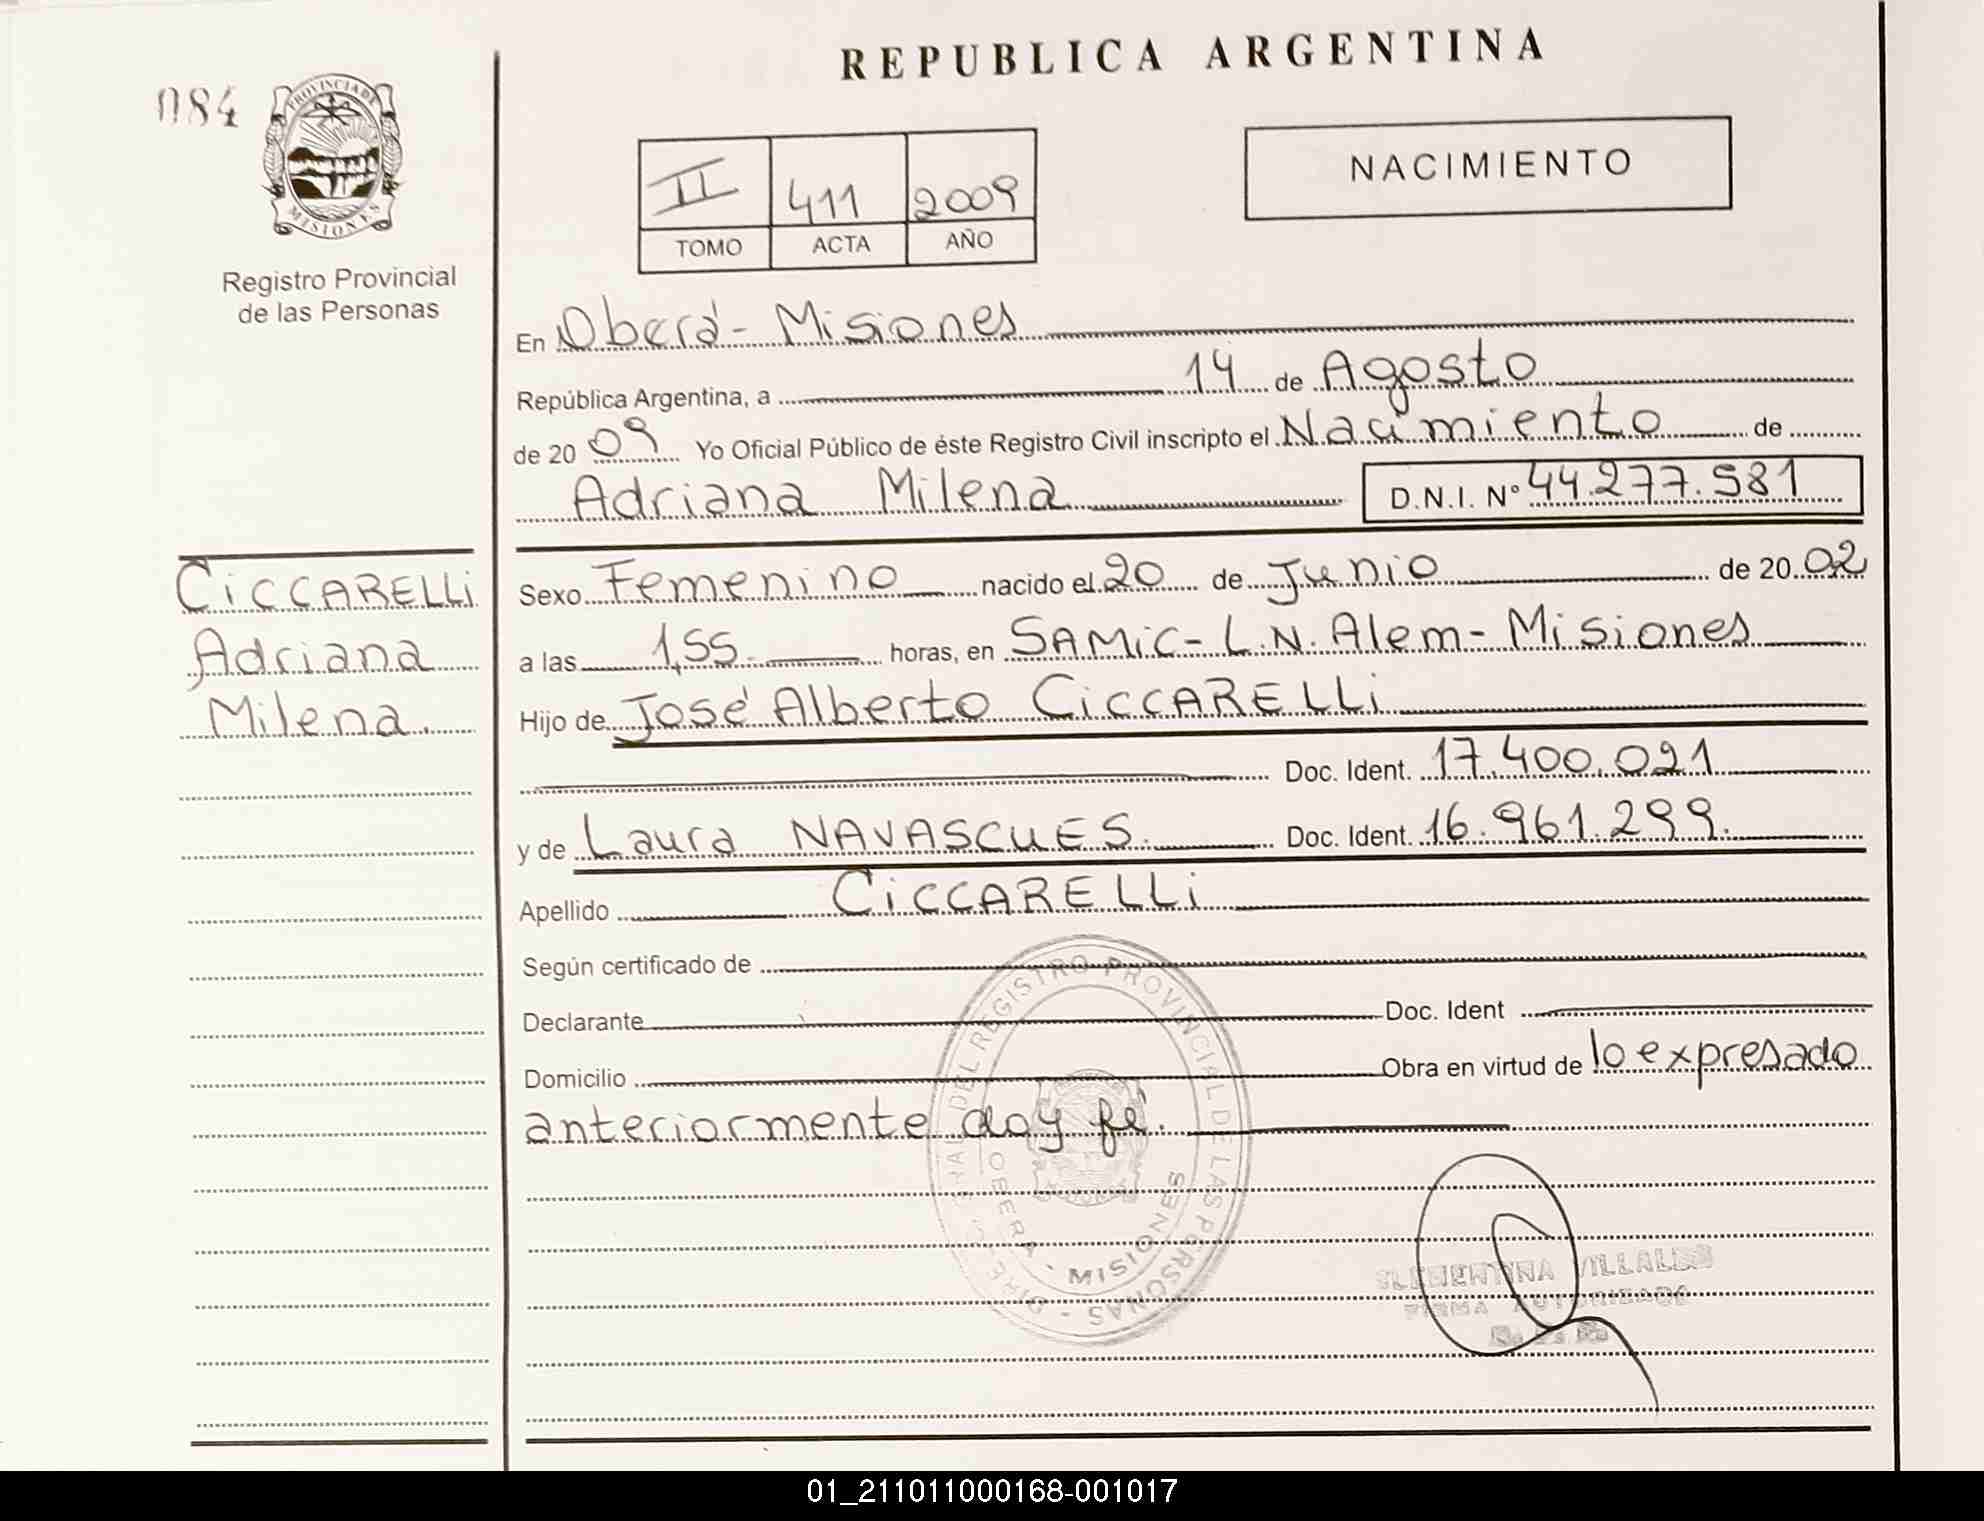 REPUBLICA ARGENTINA
084
PROVINCIA DE
MISIONES
Registro Provincial
de las Personas
NACIMIENTO
II 411 2009
TOMO ACTA AÑO
En Oberá - Misiones
República Argentina, a 14 de Agosto
de 20 09 Yo Oficial Público de éste Registro Civil inscripto el Nacimiento de
Adriana Milena D.N.I. Nº 44.277.581
CiCCARELLi
Adriana
Milena.
Sexo Femenino nacido el 20 de Junio de 20 02
a las 1,55. horas, en SAMiC - L.N. Alem - Misiones
Hijo de José Alberto CiCCARELLi
Doc. Ident. 17.400.021
y de Laura NAVASCUES. Doc. Ident. 16.961.299.
Apellido CiCCARELLi
Según certificado de
Declarante Doc. Ident
Domicilio Obra en virtud de lo expresado
anteriormente doy fé.
REGISTRO PROVINCIAL DE LAS PERSONAS
OBERA - MISIONES
FIRMA
01_211011000168-001017